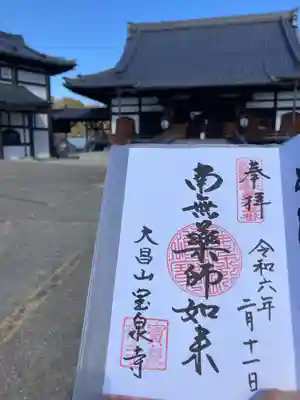 奉拝
令和六年
二月十一日
南無薬師如来
大昌山宝泉寺